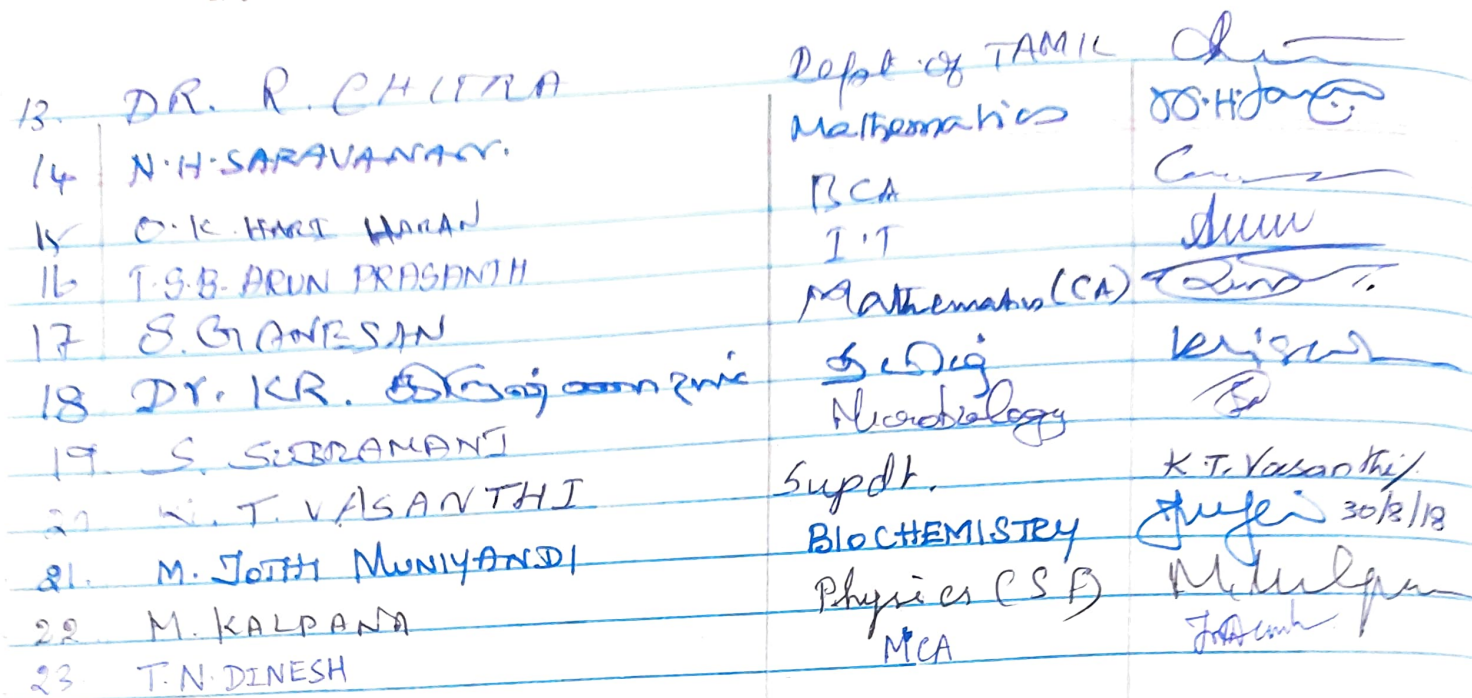 13. DR. R. CHITRA Dept of TAMIL
14 N.H.SARAVANAN. Mathematics
15 O.K. HARI HARAN BCA
16 T.S.B. ARUN PRASANTH I.T
17 S. GANESAN Mathematics (CA)
18 Dr. KR. தமிழ்
19. S. SUBRAMANI Microbiology
K. T. VASANTHI Supdt. K.T. Vasanthi
21. M. JOTHI MUNIYANDI BIOCHEMISTRY 30/8/18
22 M. KALPANA Physics (SF)
23 T.N. DINESH MCA